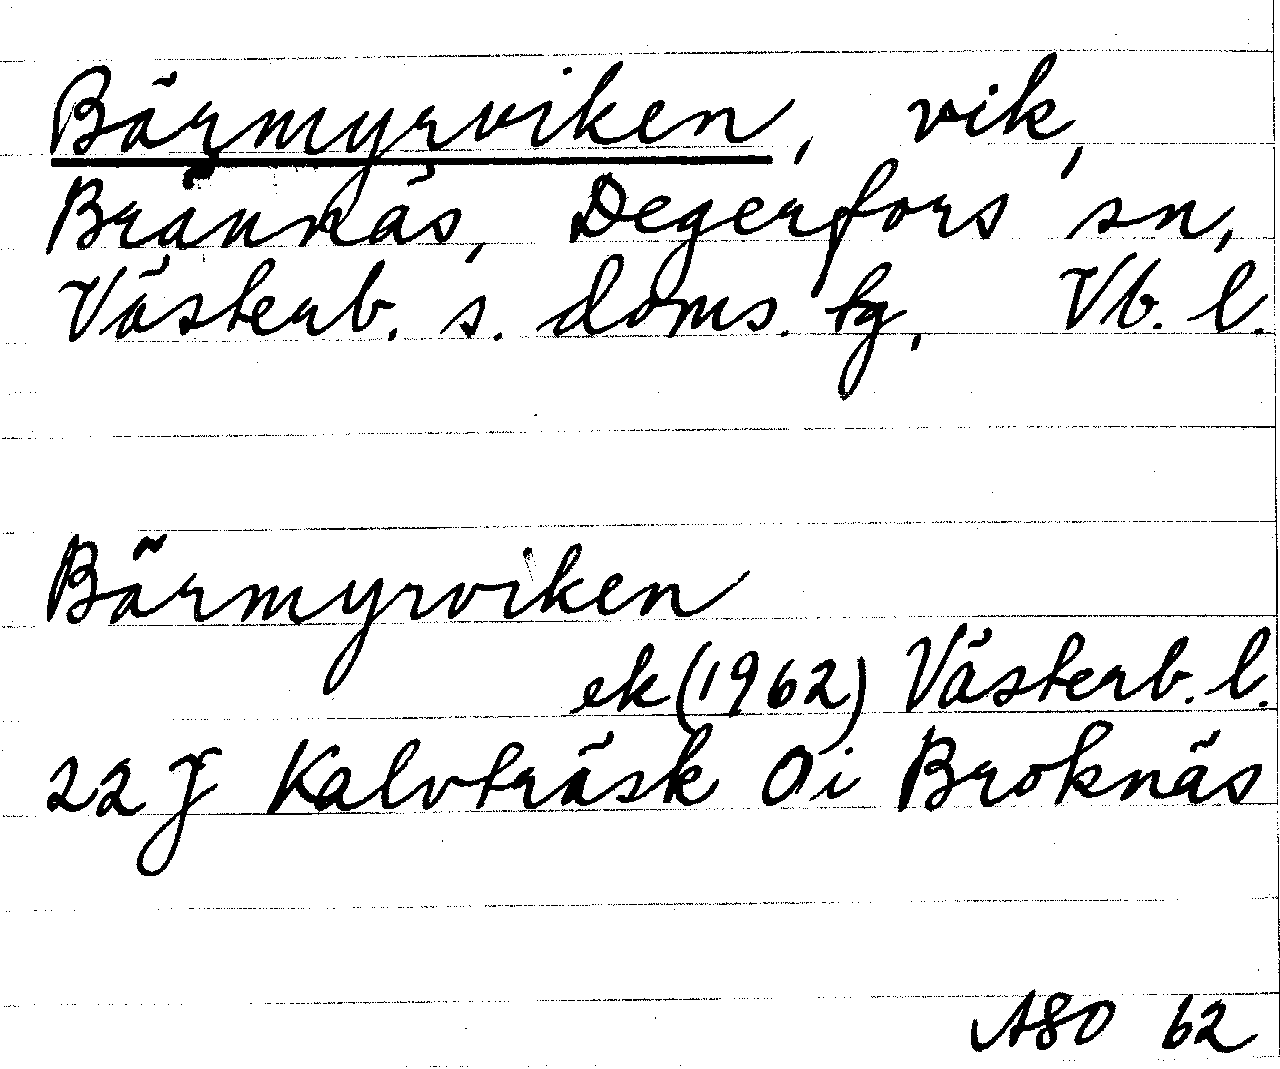 Bärmyrviken, vik,
Brännäs, Degerfors sn,
Västerb. s. doms. tg, Vb. l.
Bärmyrviken
ek (1962) Västerb. l.
22 J Kalvträsk 0 i Broknäs
ASO 62